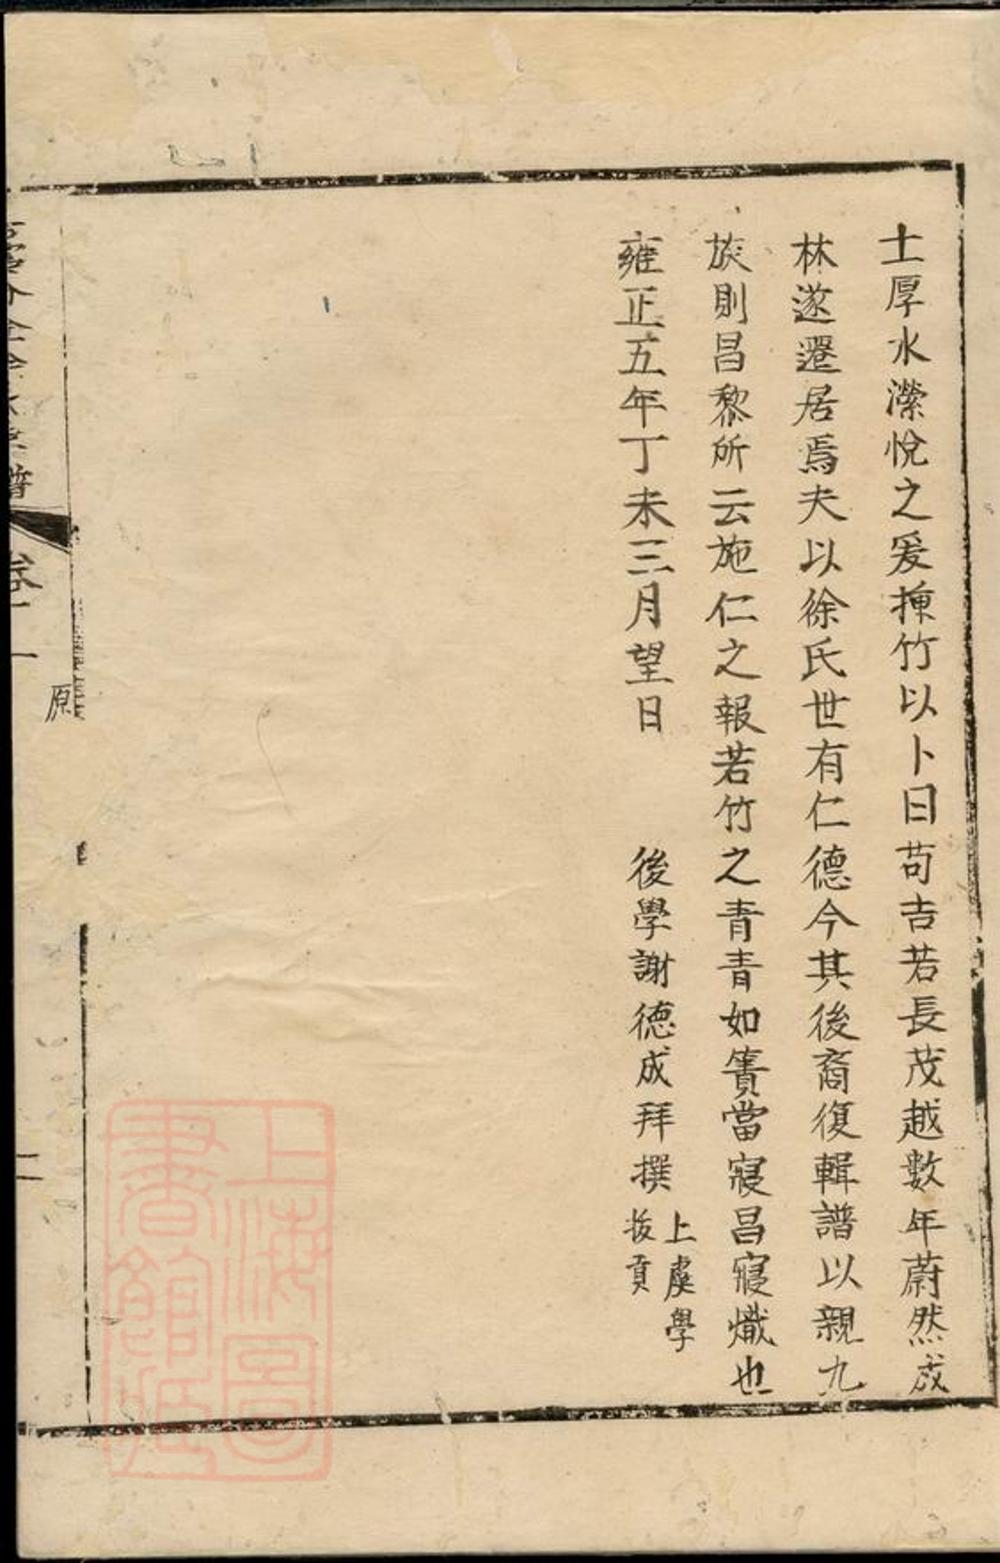 土厚水濴悅之爰揀竹以卜曰苟吉若長茂越數年蔚然成
林遂遷居焉夫以徐氏世有仁德今其後裔復輯譜以親九
族則昌黎所云施仁之報若竹之青青如簀當寢昌寢熾也
雍正五年丁未三月望日　　後學謝德成拜撰
上虞學
拔貢
譜
卷一
原
二
上海圖書館藏